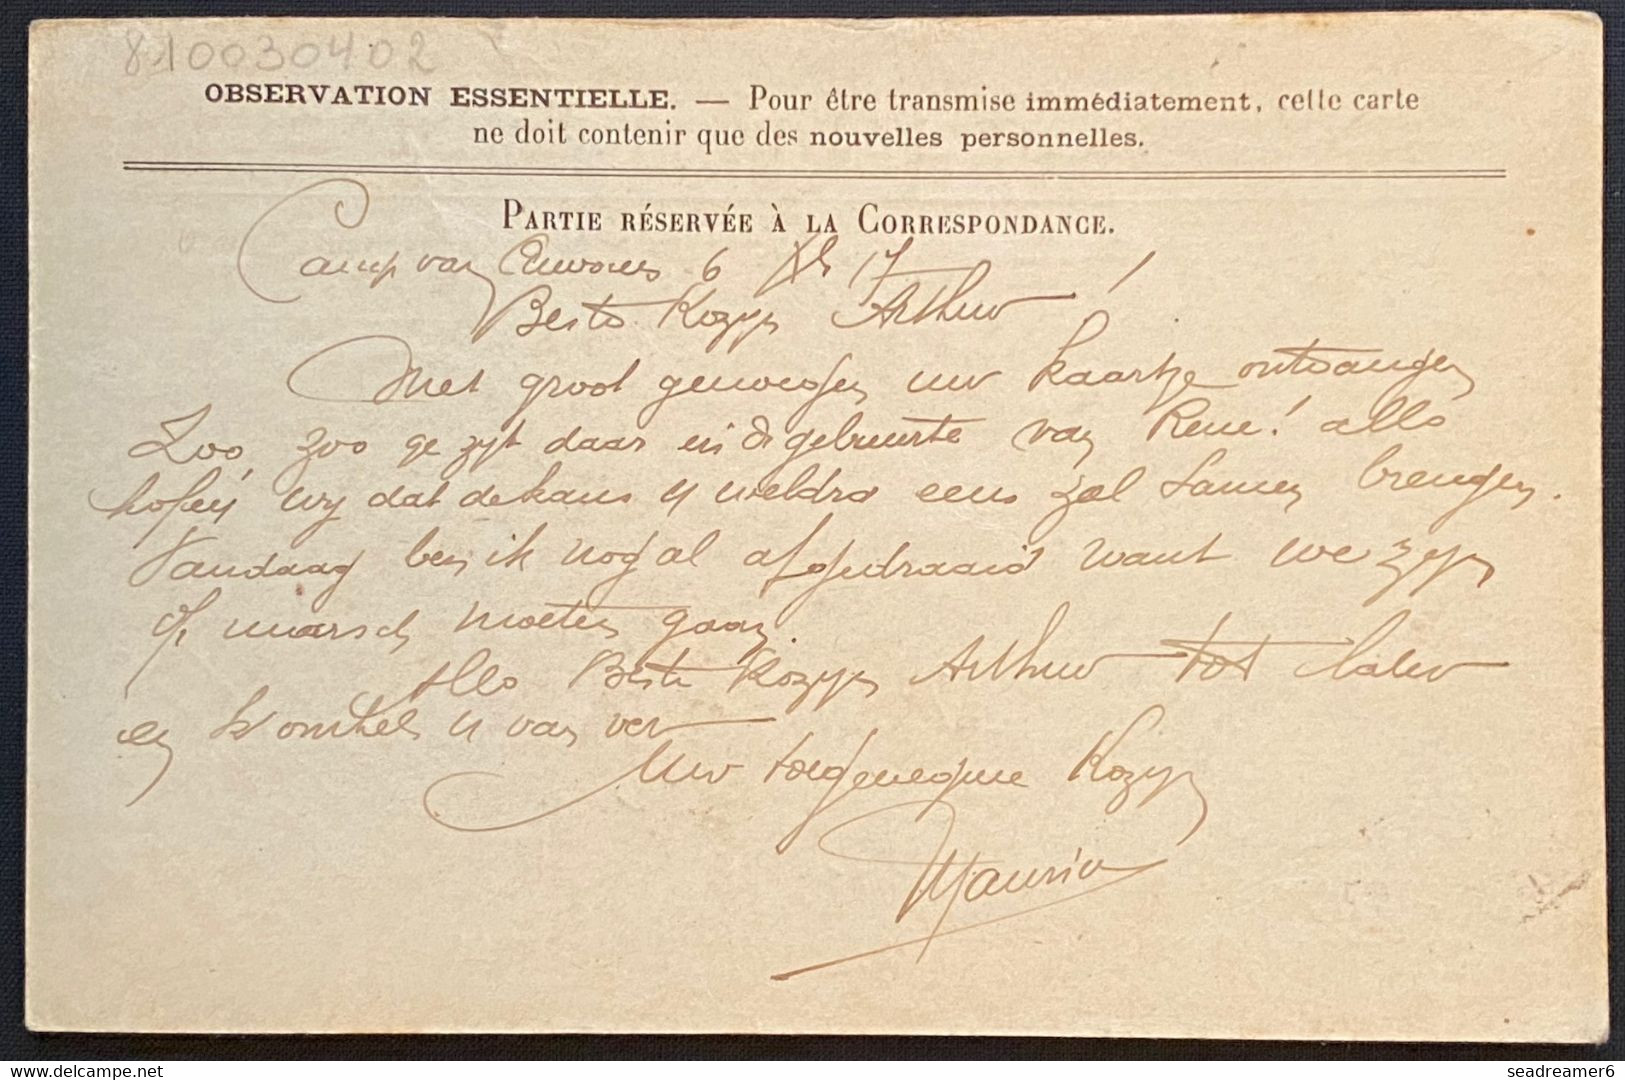 8100030402
OBSERVATION ESSENTIELLE. — Pour être transmise immédiatement, cette carte
ne doit contenir que des nouvelles personnelles.
PARTIE RÉSERVÉE À LA CORRESPONDANCE.
Camp van Auvours 6 Xb 17
Beste Kozyn Arthur!
Met groot genoegen uw kaartje ontvangen
Zoo zoo ge zyt daar in de gebuurte van René! allo
hopen wy dat de kans u weldra eens zal samen brengen.
Vandaag ben ik nog al afgedraaid want we zyn
op marsch moeten gaan.
Allo Beste Kozyn Arthur tot later
en k'omhels u van ver
Uw toegenegene Kozyn
Maurice
© delcampe.net
seadreamer6